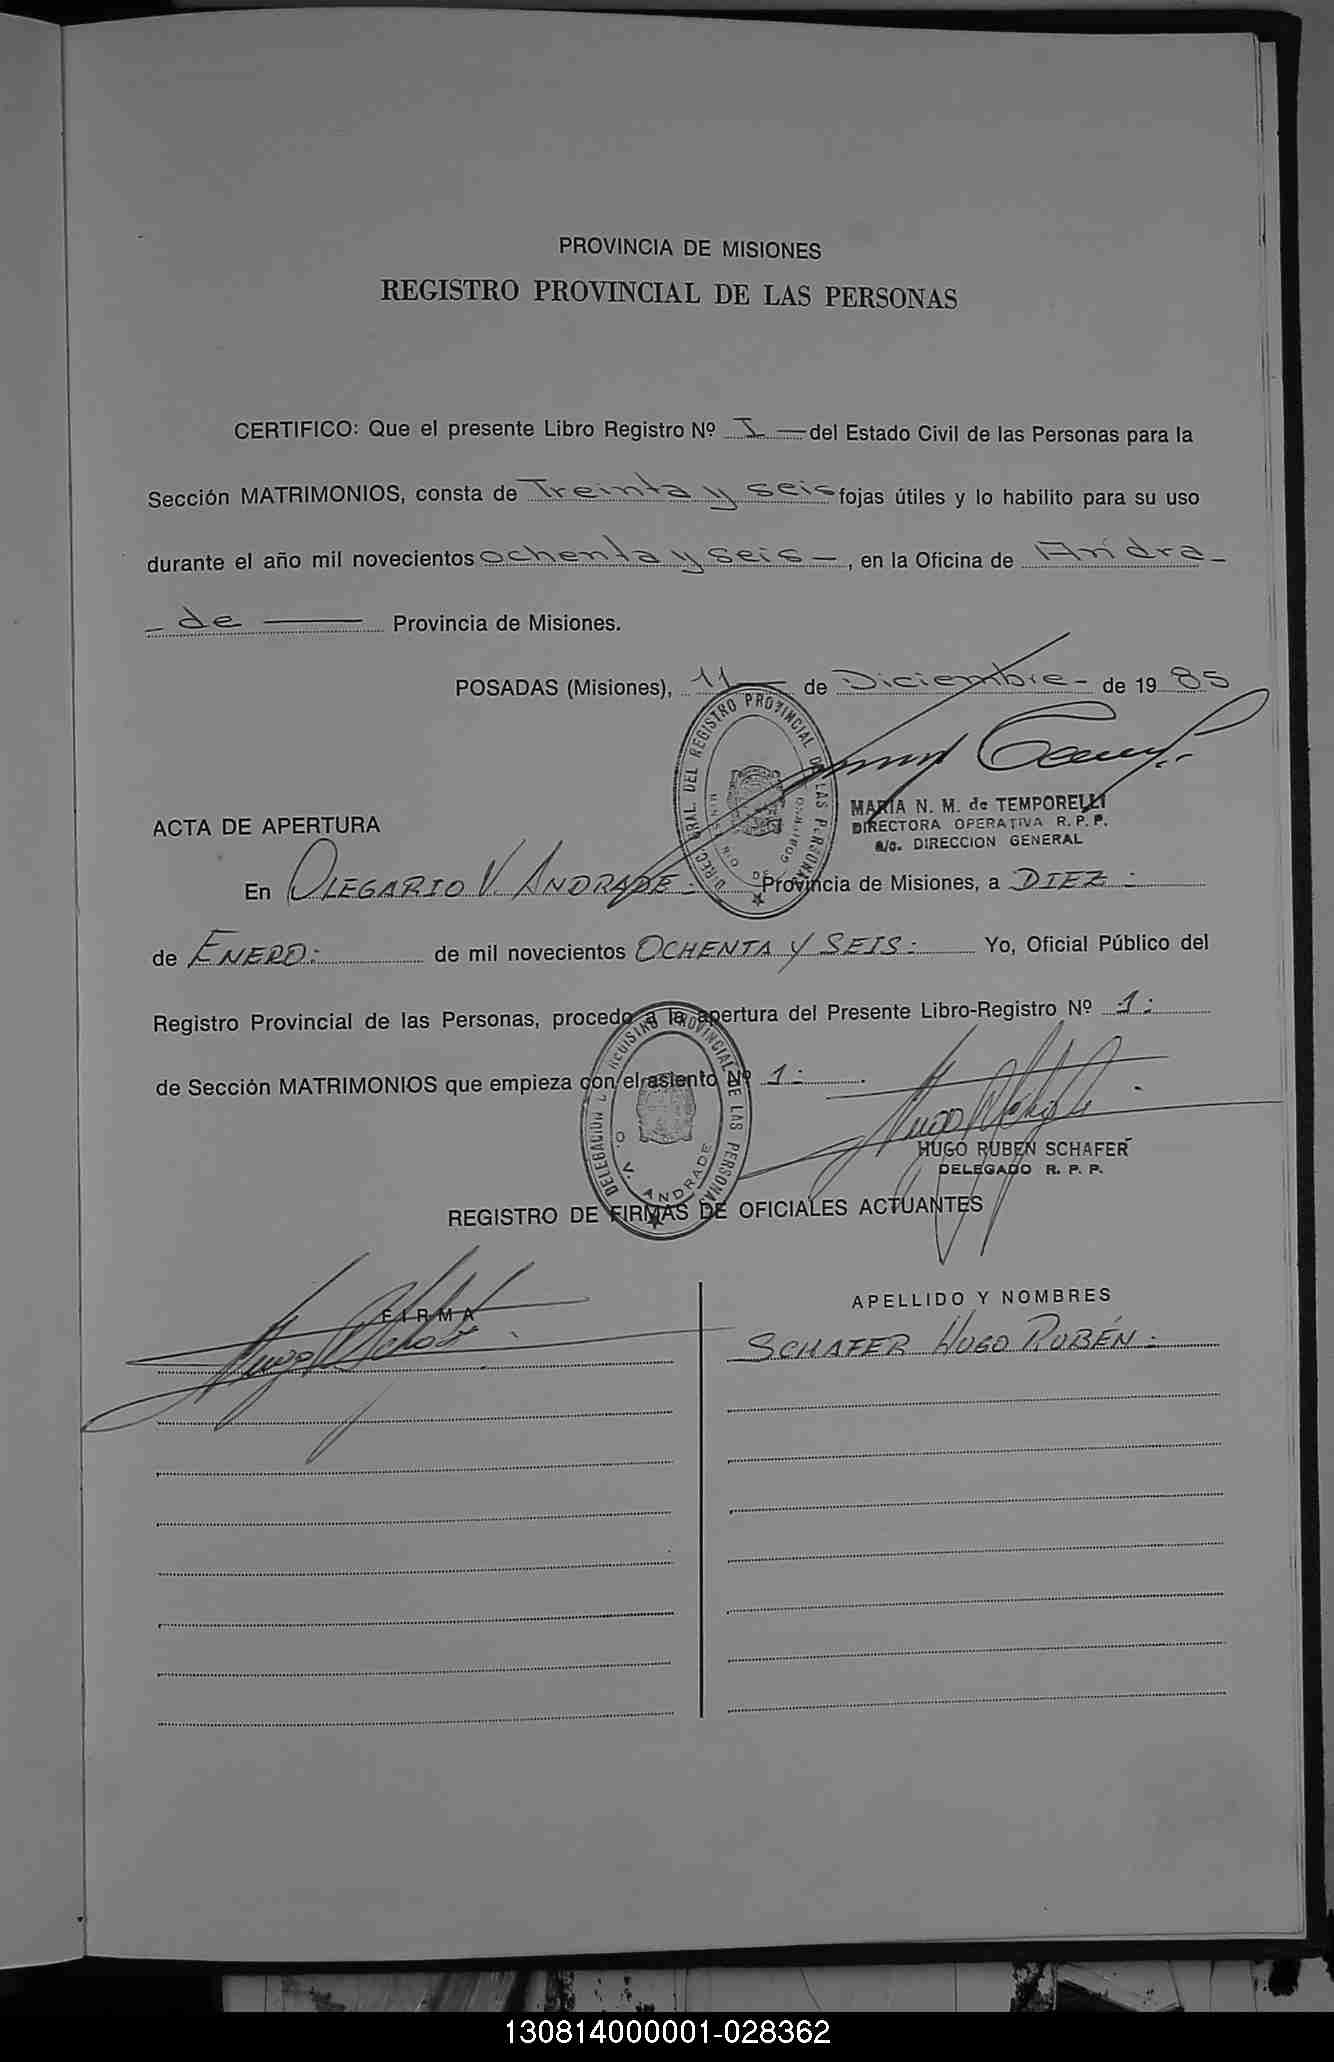 PROVINCIA DE MISIONES
REGISTRO PROVINCIAL DE LAS PERSONAS
CERTIFICO: Que el presente Libro Registro Nº I — del Estado Civil de las Personas para la
Sección MATRIMONIOS, consta de Treinta y seis fojas útiles y lo habilito para su uso
durante el año mil novecientos ochenta y seis —, en la Oficina de Andra-
- de — Provincia de Misiones.
POSADAS (Misiones), 11 — de Diciembre - de 19 85
DIREC. GRAL. DEL REGISTRO PROVINCIAL DE LAS PERSONAS
MARIA N. M. de TEMPORELLI
DIRECTORA OPERATIVA R. P. P.
a/c. DIRECCION GENERAL
ACTA DE APERTURA
En OLEGARIO V. ANDRADE - Provincia de Misiones, a DIEZ :
de ENERO: de mil novecientos OCHENTA Y SEIS: Yo, Oficial Público del
Registro Provincial de las Personas, procedo a la apertura del Presente Libro-Registro Nº 1:
de Sección MATRIMONIOS que empieza con el asiento Nº 1: .
DELEGACION REGISTRO PROVINCIAL DE LAS PERSONAS
O. V. ANDRADE
HUGO RUBEN SCHAFER
DELEGADO R. P. P.
REGISTRO DE FIRMAS DE OFICIALES ACTUANTES
FIRMA
APELLIDO Y NOMBRES
SCHAFER HUGO RUBÉN:
130814000001-028362